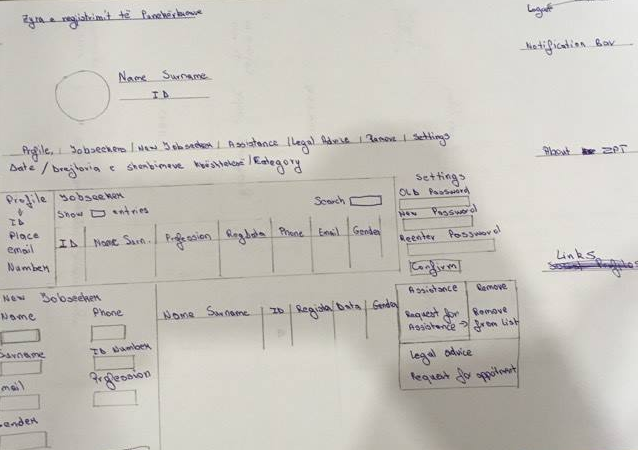 Zyra e regjistrimit të Punëkërkuesve
Logout
Notification Bar
Name Surname
ID
Profile / Jobseekers / New Jobseeker / Assistance / Legal Advice / Remove / Settings
Date / Drejtoria e / Category
About ZPT
Profile
ID
Place
email
Number
Jobseeker
Search
Show entries
ID Name Surn. Profession Regdata Phone Email Gender
Settings
OLD Password
New Password
Reenter Password
Confirm
Links
New Jobseeker
Name Phone
Surname ID Number
mail Profession
ender
Name Surname ID Register Data Gender
Assistance Remove
Request for Assistance → Remove from List
Legal advice
Request for appointment